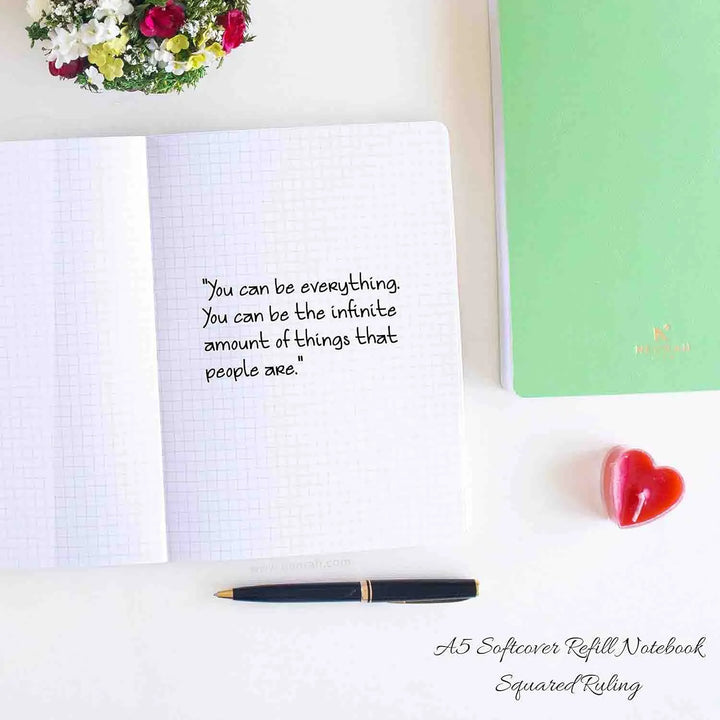 "You can be everything.
You can be the infinite
amount of things that
people are."
A5 Softcover Refill Notebook
Squared Ruling